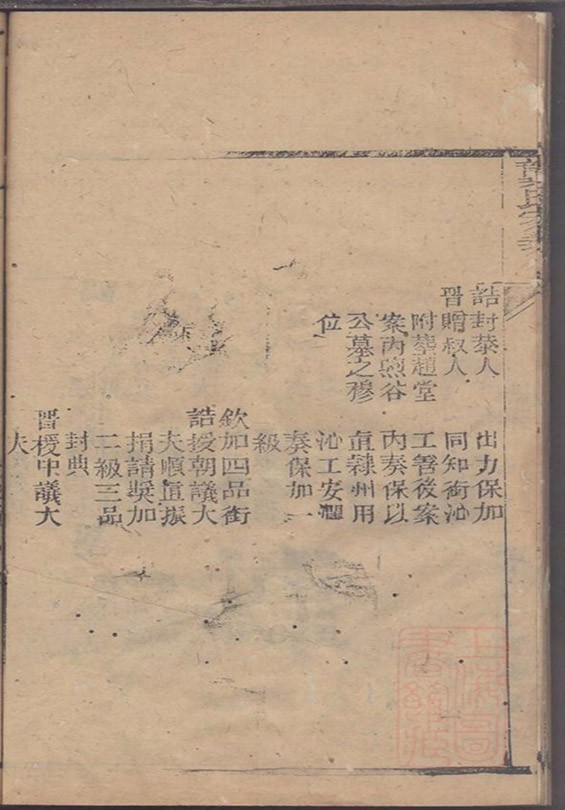 誥封恭人
晉贈淑人
附塟趙堂
案丙煦谷
公墓之穆
位
出力保加
同知銜沁
工善後案
內奏保以
直隸州用
沁工安瀾
奏保加一
級
欽加四品銜
誥授朝議大
夫順直振
捐請奬加
二級三品
封典
晉授中議大
夫
上海圖
書館藏